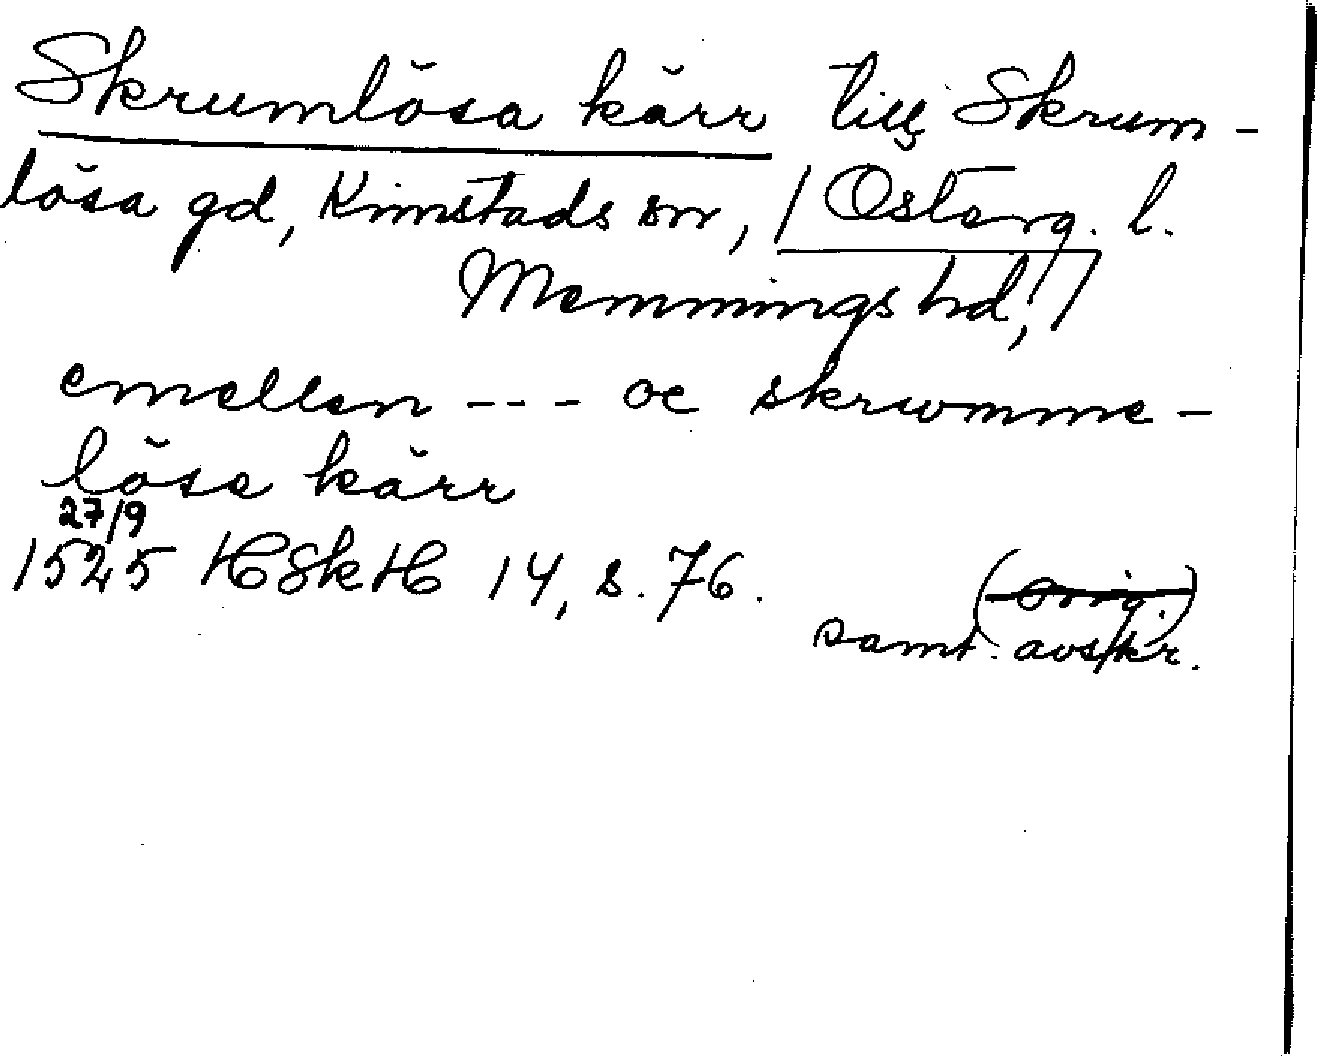 Skrumlösa kärr till Skrum-
lösa gd, Kimstads sn, / Österg. l.
Memmings hd, /
emellen --- oc skrwmme-
löse kärr
27/9
1525 HSkH 14, s. 76.
(orig.)
samt. avskr.